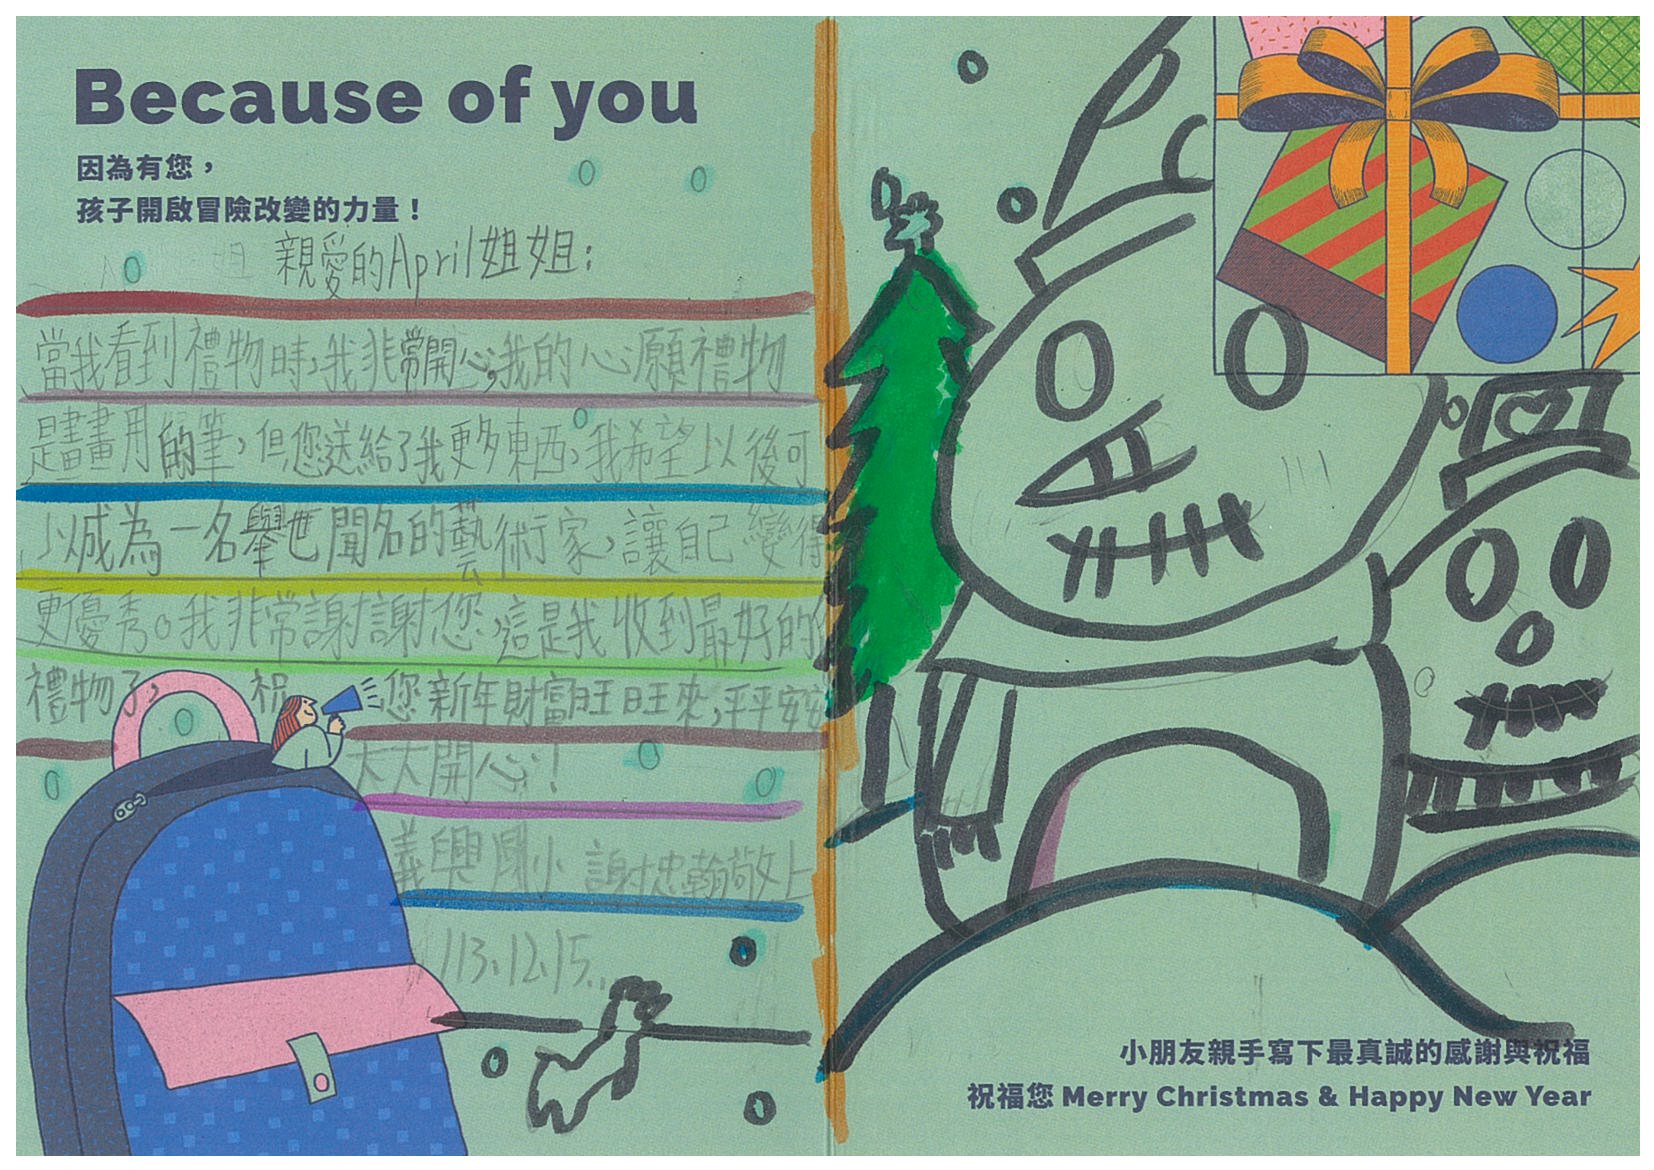 Because of you
因為有您，
孩子開啟冒險改變的力量！
親愛的April姐姐：
當我看到禮物時，我非常開心，我的心願禮物
是畫畫用的筆，但您送給了我更多東西，我希望以後可
以成為一名舉世聞名的藝術家，讓自己變得
更優秀。我非常謝謝您，這是我收到最好的
禮物了，祝您新年財富旺旺來，平平安安
天天開心！
義興國小 謝忠翰敬上
113.12.15.
小朋友親手寫下最真誠的感謝與祝福
祝福您 Merry Christmas & Happy New Year